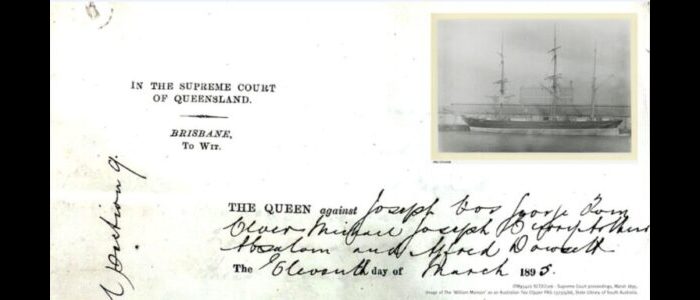 IN THE SUPREME COURT
OF QUEENSLAND.
BRISBANE,
TO WIT.
THE QUEEN against Joseph Vos George Tom
Michael Joseph
Absalom and Alfred Dowsett
The Eleventh day of March 1895.
Supreme Court proceedings, March 1895.
Image of The 'William Manson' as an Australian Tax Clipper PRG 1373/9/66, State Library of South Australia.